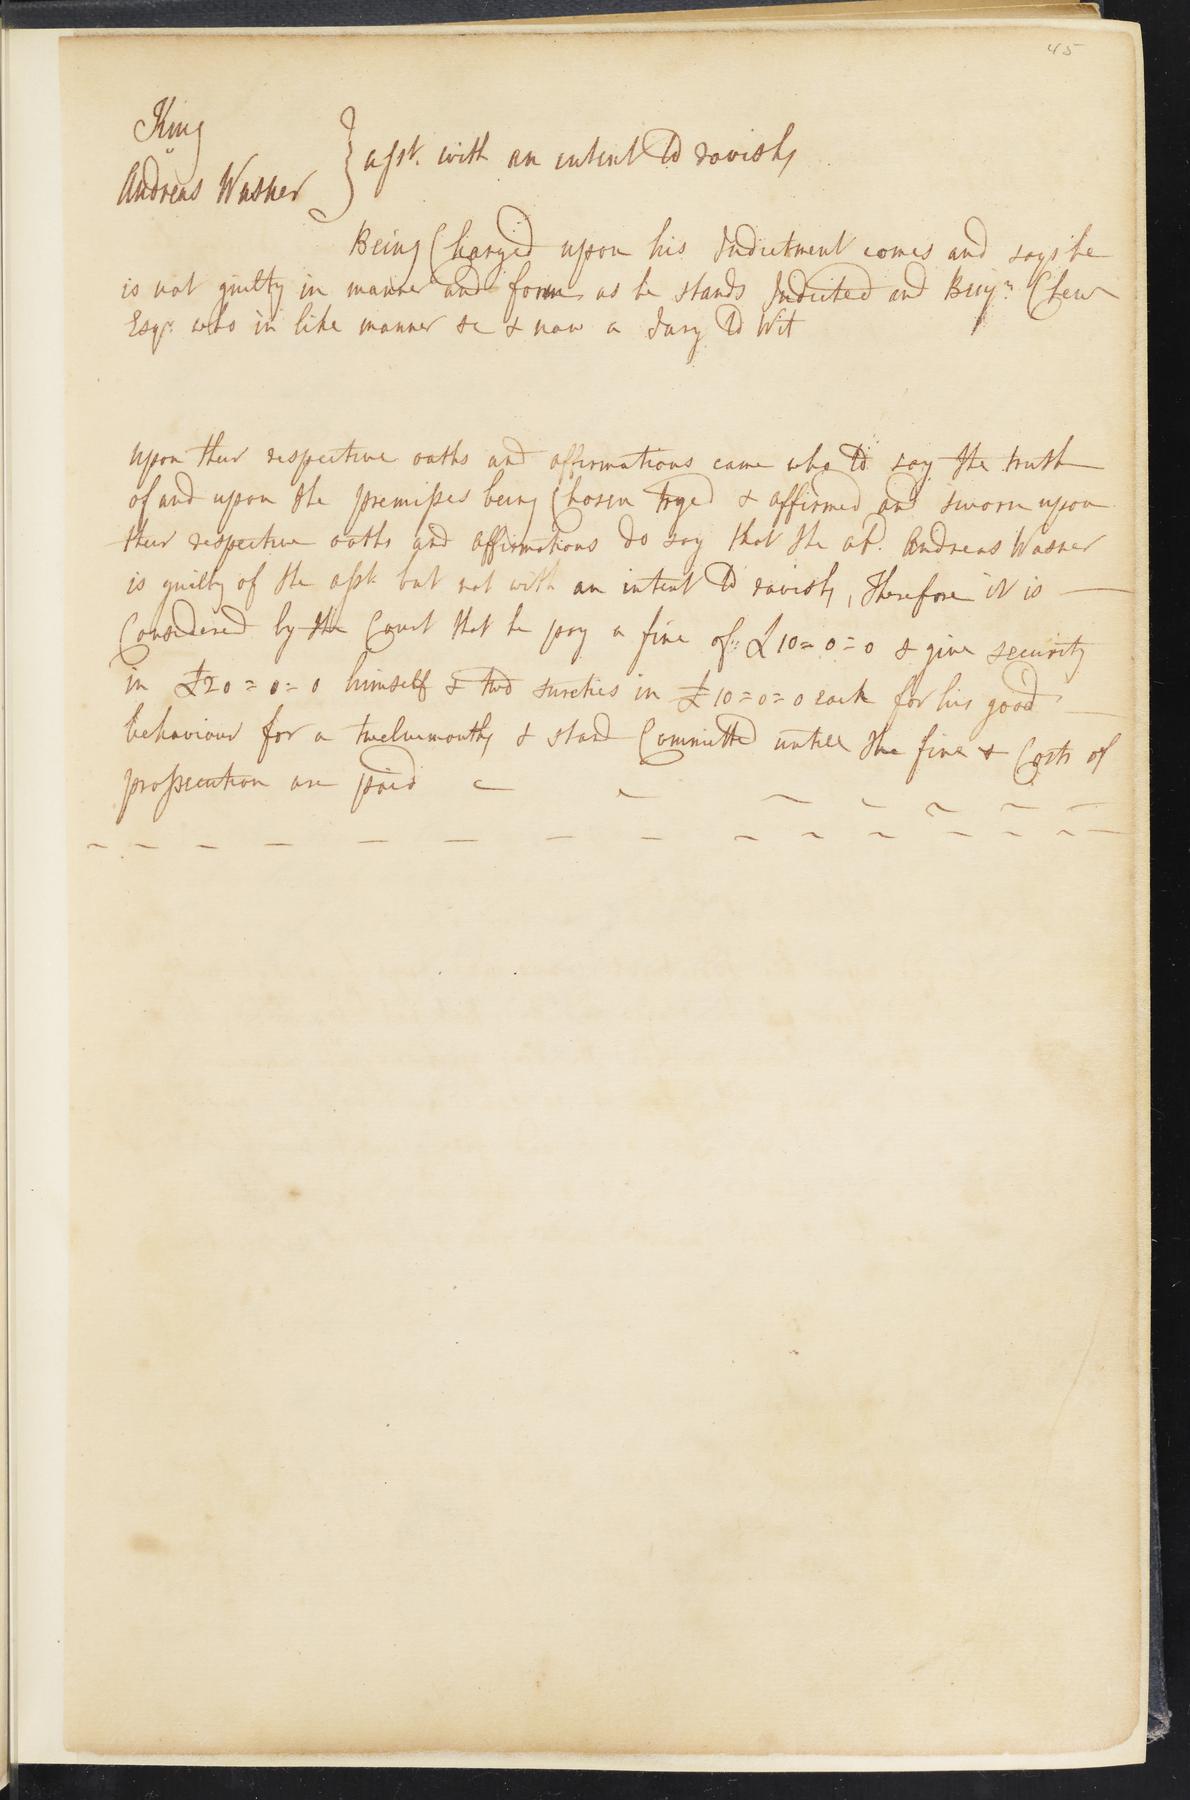 45
King
v
Andreas Wasner } asst. with an intent to ravish
Being Charged upon his Indictment comes and says he
is not guilty in manner and form as he stands Indicted and Benjn. Chew
Esqr. who in like manner &c & now a Jury to Wit
upon their respective oaths and affirmations came who to say the truth
of and upon the premisses being Chosen tryed & affirmed and sworn upon
their respective oaths and affirmations do say that the afd. Andreas Wasner
is guilty of the asst. but not with an intent to ravish, Therefore it is
Considered by the Court that he pay a fine of £10=0=0 & give security
in £20=0=0 himself & two sureties in £10=0=0 each for his good
behaviour for a twelvemonth & stand Committed untill the fine & Costs of
prossecution are paid